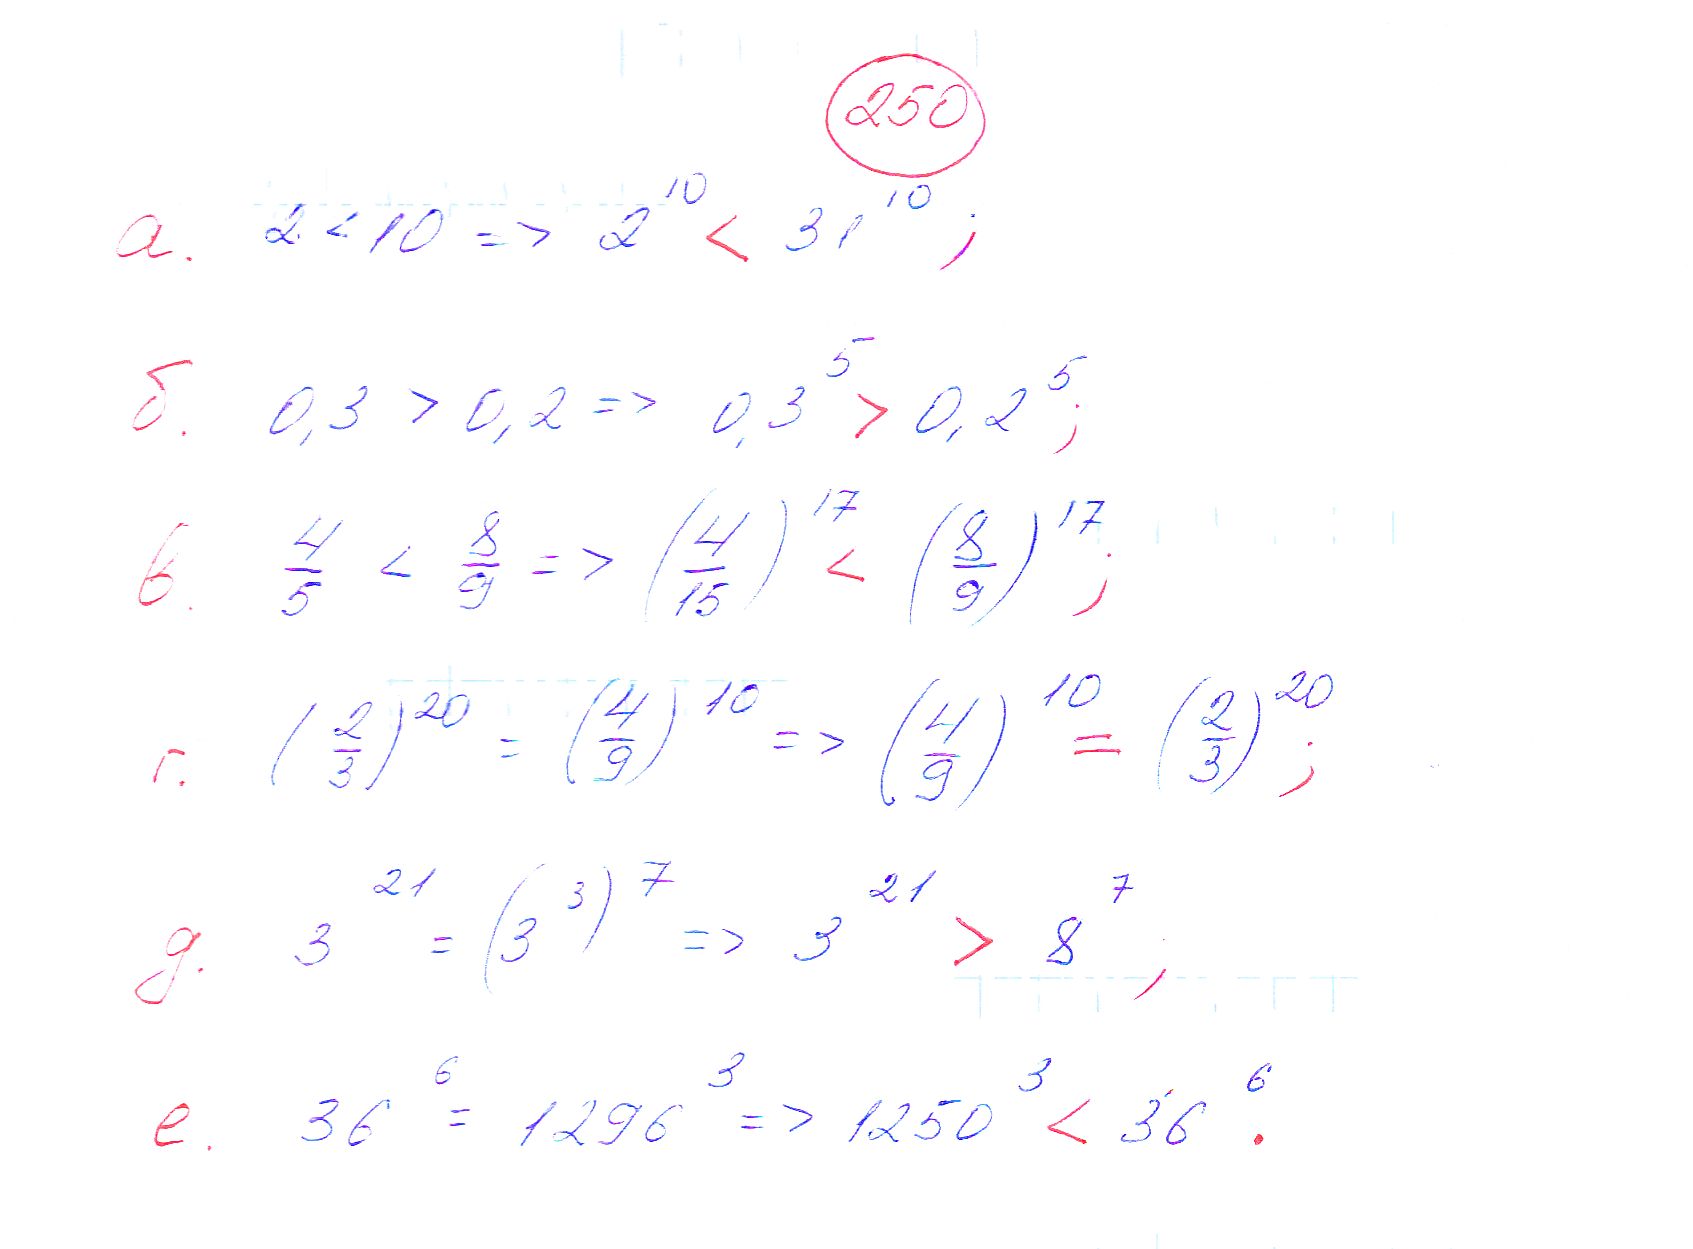 250
а. 2 < 10 => 2^10 < 31^10 ;
б. 0,3 > 0,2 => 0,3^5 > 0,2^5 ;
в. 4/5 < 8/9 => (4/15)^17 < (8/9)^17 ;
г. (2/3)^20 = (4/9)^10 => (4/9)^10 = (2/3)^20 ;
д. 3^21 = (3^3)^7 => 3^21 > 8^7 ;
е. 36^6 = 1296^3 => 1250^3 < 36^6 .